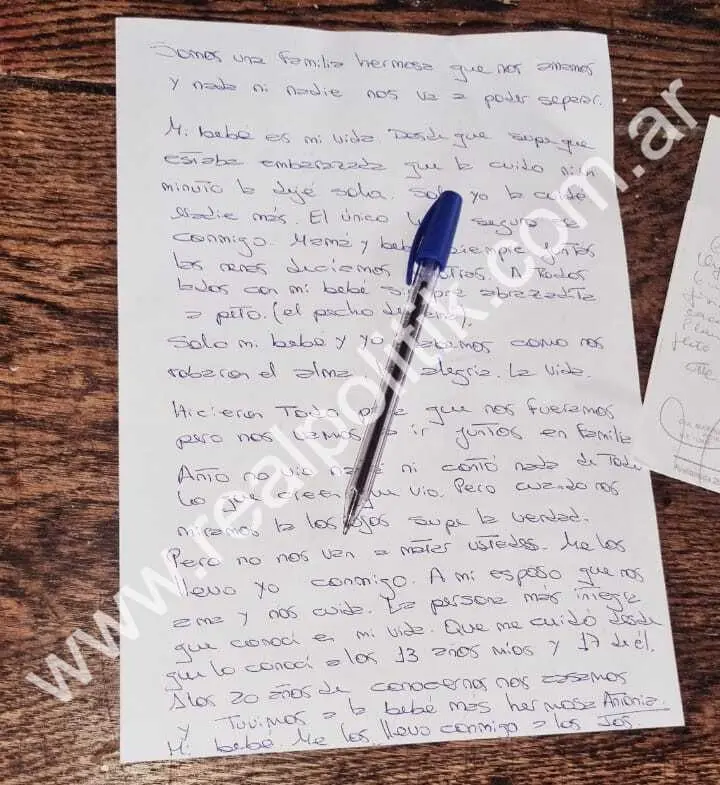 Somos una familia hermosa que nos amamos
y nada ni nadie nos va a poder separar.
Mi bebé es mi vida. Desde que supe que
estaba embarazada que la cuido ni un
minuto la dejé sola. Solo yo la cuido
Nadie más. El único seguro
conmigo. Mamá y bebé siempre juntas
las nenas decíamos nosotras. A todos
lados con mi bebé siempre abrazadita
a peto. (el pecho
Solo mi bebé y yo sabemos como nos
robaron el alma alegría. La vida.
Hicieron todo para que nos fueramos
pero nos vamos a ir juntos en familia
Anto no vio nada ni contó nada de todo
lo que creen que vio. Pero cuando nos
miramos a los ojos supe la verdad.
Pero no nos van a matar ustedes. Me los
llevo yo conmigo. A mi esposo que nos
ama y nos cuida. La persona más integra
que conocí en mi vida. Que me cuidó desde
que lo conocí a los 13 años míos y 17 de él.
A los 20 años de conocernos nos casamos
y tuvimos a la bebé mas hermosa Antonia.
Mi bebé. Me los llevo conmigo a los dos
www.realpolitik.com.ar